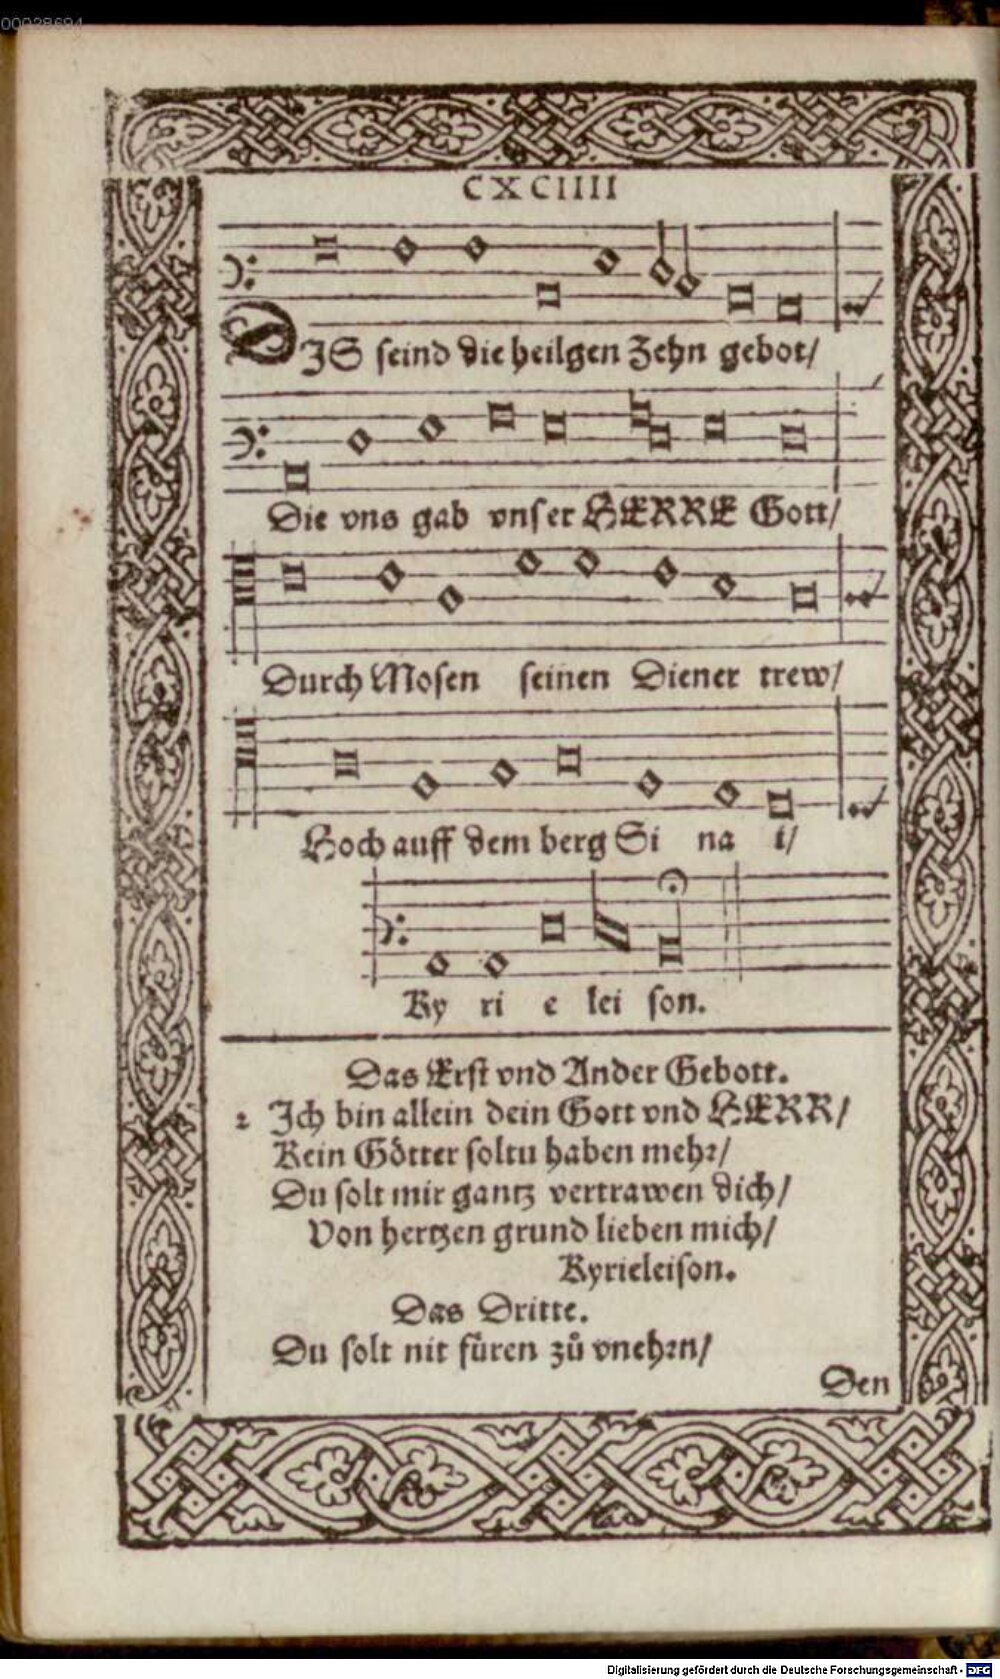 00028694
CXCIIII
DIS seind die heilgen Zehn gebot/
Die vns gab vnser HERRE Gott/
Durch Mosen seinen Diener trew/
Hoch auff dem berg Si na i/
Ky ri e lei son.
Das Erst vnd Ander Gebott.
2 Ich bin allein dein Gott vnd HERR/
Kein Götter soltu haben mehr/
Du solt mir gantz vertrawen dich/
Von hertzen grund lieben mich/
Kyrieleison.
Das Dritte.
Du solt nit füren zů vnehrn/
Den
Digitalisierung gefördert durch die Deutsche Forschungsgemeinschaft - DFG